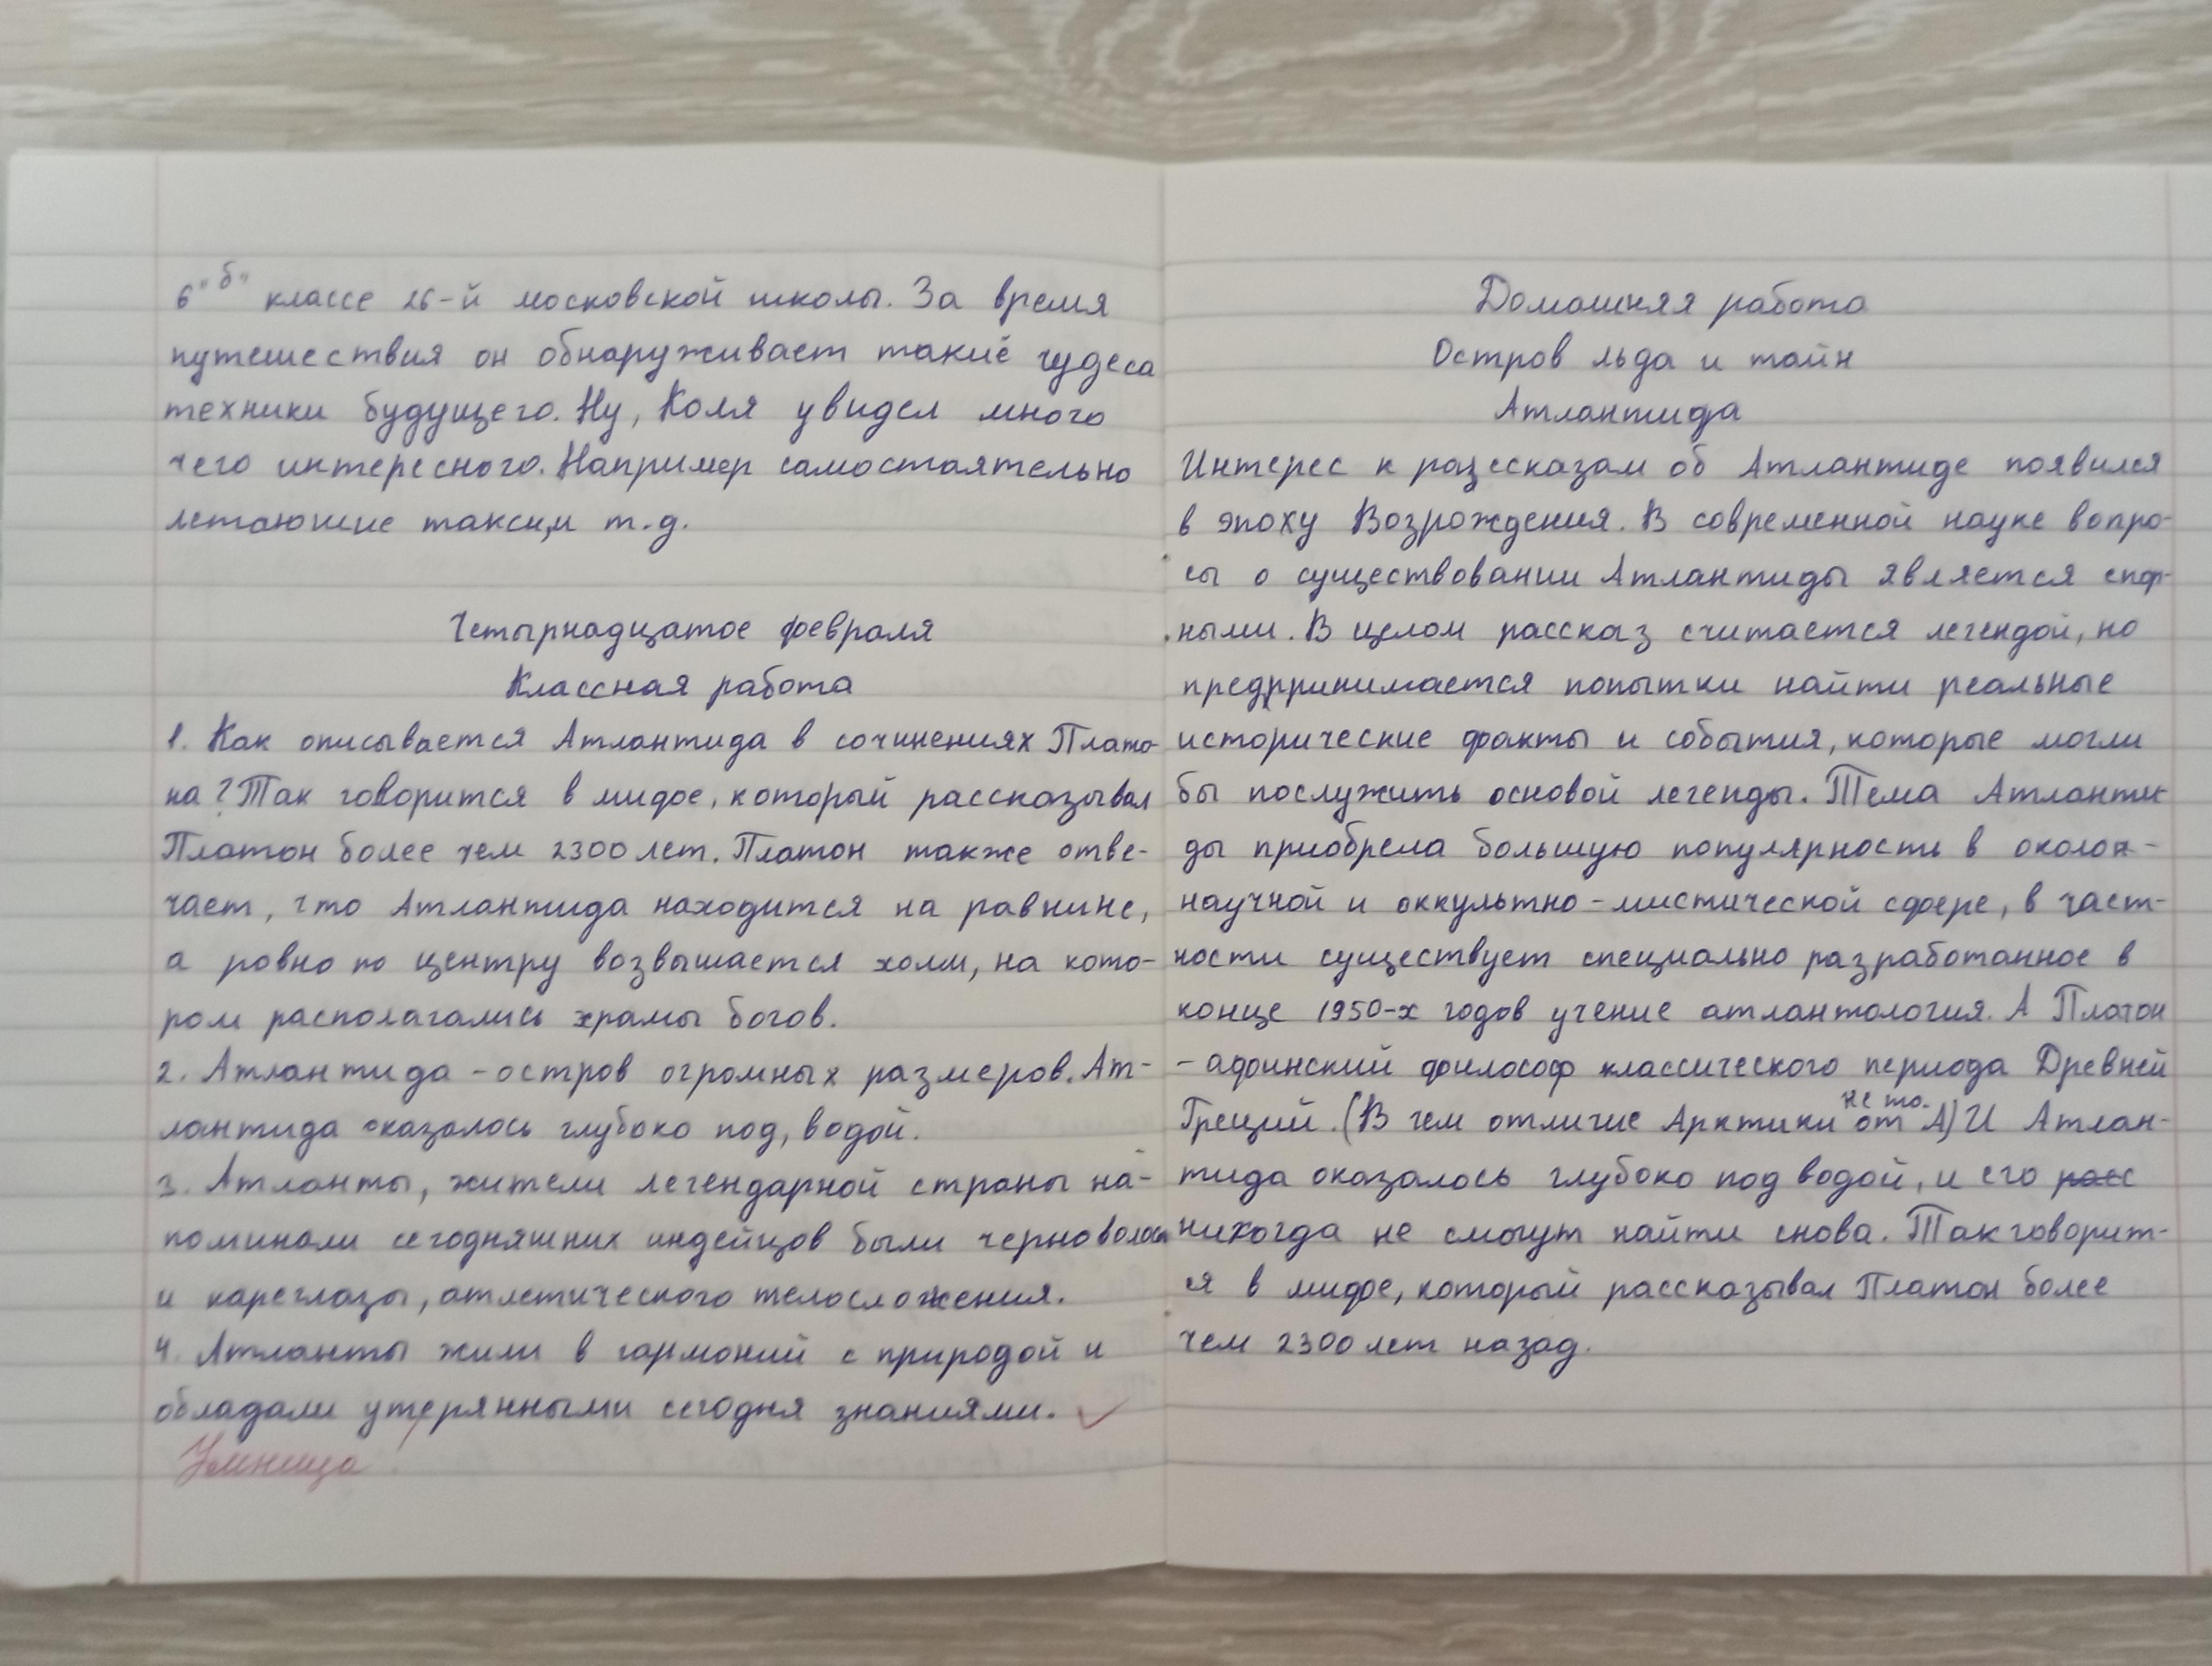 6 "б" классе 26-й московской школы. За время
путешествия он обнаруживает такие чудеса
техники будущего. Ну, Коля увидел много
чего интересного. Например самостоятельно
летающие такси,и т.д.
Четырнадцатое февраля
Классная работа
1. Как описывается Атлантида в сочинениях Плато-
на? Так говорится в мифе, который рассказывал
Платон более чем 2300 лет. Платон также отве-
чает, что Атлантида находится на равнине,
а ровно по центру возвышается холм, на кото-
ром располагались храмы богов.
2. Атлантида - остров огромных размеров. Ат-
лантида оказалось глубоко под, водой.
3. Атланты, жители легендарной страны на-
поминали сегодняшних индейцов были черноволосы
и кареглазы, атлетического телосложения.
4. Атланты жили в гармоний с природой и
обладали утерянными сегодня знаниями.
Умница!
Домашняя работа
Остров льда и тайн
Атлантида
Интерес к разсказам об Атлантиде появился
в эпоху Возрождения. В современной науке вопро-
сы о существовании Атлантиды является спор-
ными. В целом рассказ считается легендой, но
предпринимается попытки найти реальные
исторические факты и события, которые могли
бы послужить основой легенды. Тема Атланти-
ды приобрела большую популярность в около-
научной и оккультно-мистической сфере, в част-
ности существует специально разработанное в
конце 1950-х годов учение атлантология. А Платон
- афинский философ классического периода Древней
не то.
Греций. (В чем отличие Арктики от А) И Атлан-
тида оказалось глубоко под водой, и его расс
никогда не смогут найти снова. Так говорит-
ся в мифе, который рассказывал Платон более
чем 2300 лет назад.